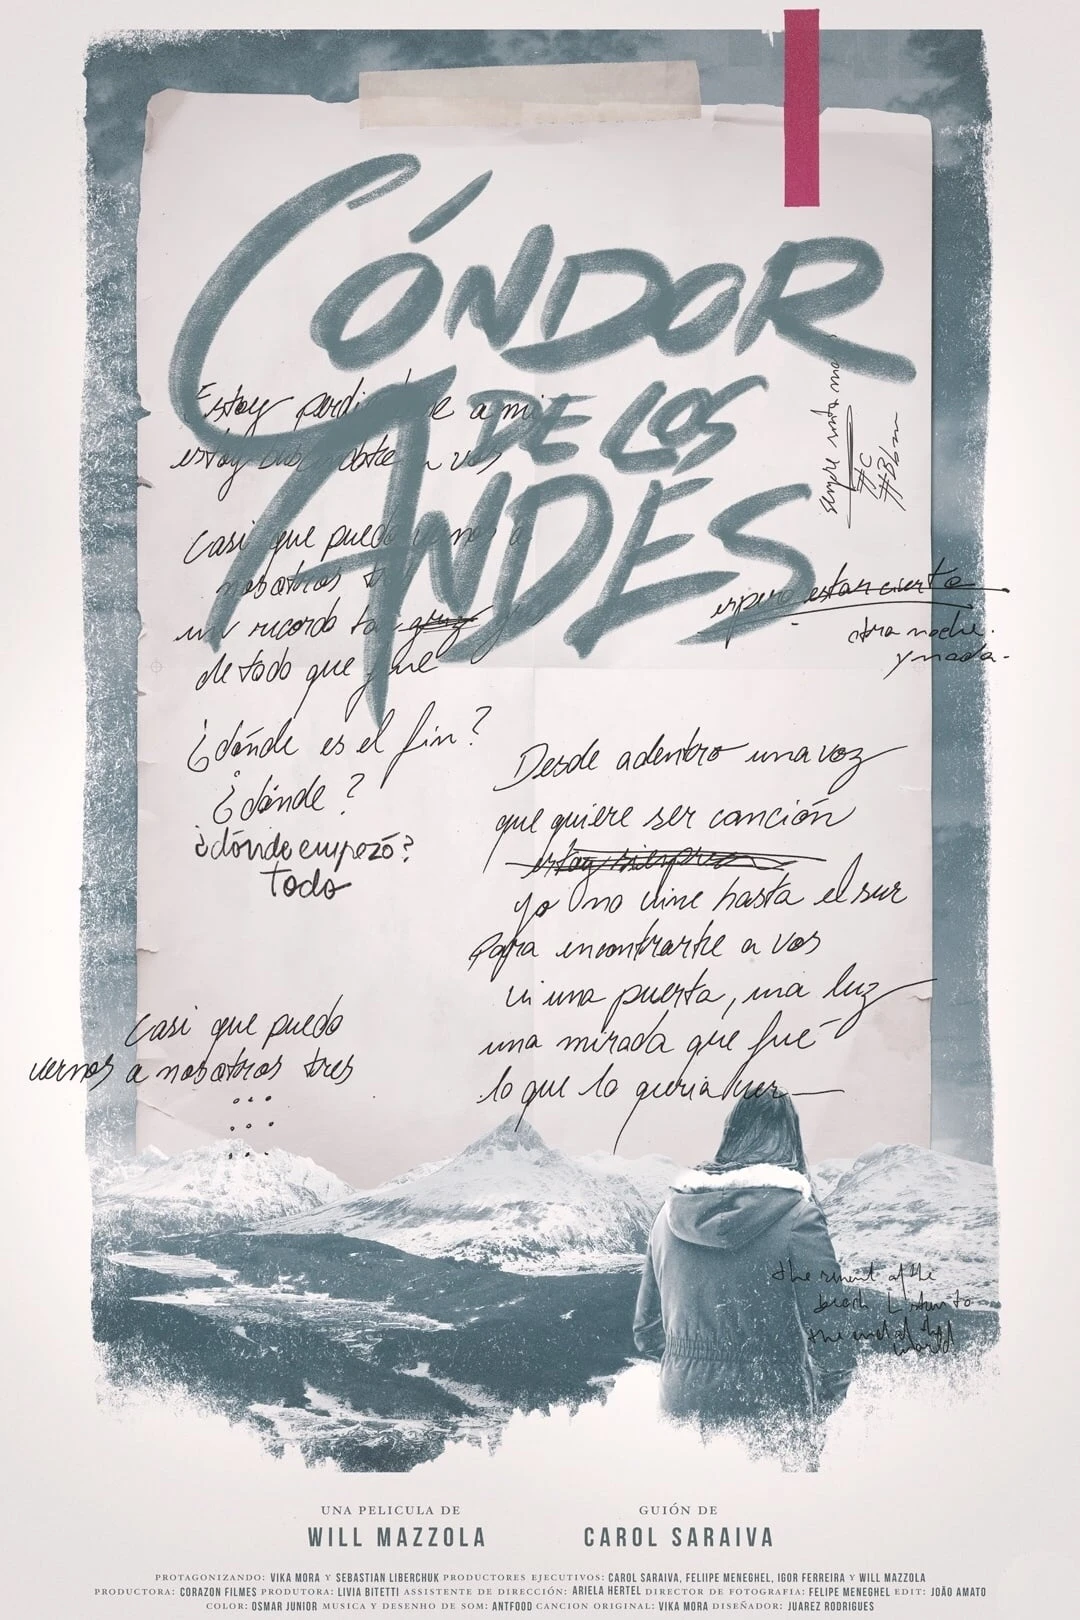 CÓNDOR
DE LOS
ANDES
Estoy a mi
estoy
sempre
#C
Casi que puedo
nosotros
un recordo
de todo que fue
espero estar cierto
otra noche.
y nada.
¿dónde es el fin?
¿dónde?
¿dónde empezó?
Todo
Desde adentro una voz
que quiere ser canción
estoy siempre
yo no vine hasta el sur
Para encontrarte a vos
vi una puerta, una luz
una mirada que fué
lo que lo queria ver
Casi que puedo
vernos a nosotros tres
...
...
...
the of the
to
the end of the
world
UNA PELICULA DE
WILL MAZZOLA
GUIÓN DE
CAROL SARAIVA
PROTAGONIZANDO: VIKA MORA Y SEBASTIAN LIBERCHUK PRODUCTORES EJECUTIVOS: CAROL SARAIVA, FELIIPE MENEGHEL, IGOR FERREIRA Y WILL MAZZOLA
PRODUCTORA: CORAZON FILMES PRODUTORA: LIVIA BITETTI ASSISTENTE DE DIRECCIÓN: ARIELA HERTEL DIRECTOR DE FOTOGRAFIA: FELIPE MENEGHEL EDIT: JOÃO AMATO
COLOR: OSMAR JUNIOR MUSICA Y DESENHO DE SOM: ANTFOOD CANCION ORIGINAL: VIKA MORA DISEÑADOR: JUAREZ RODRIGUES